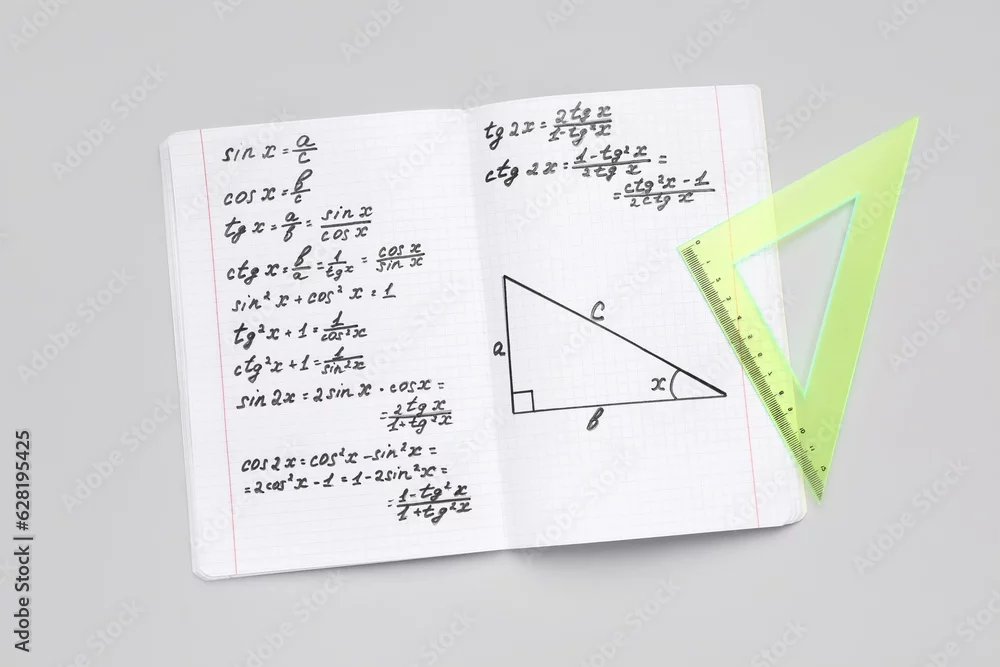 sin x = a/c
cos x = b/c
tg x = a/b = sin x/cos x
ctg x = b/a = 1/tg x = cos x/sin x
sin² x + cos² x = 1
tg² x + 1 = 1/cos² x
ctg² x + 1 = 1/sin² x
sin 2x = 2 sin x · cos x =
= 2 tg x/1 + tg² x
cos 2x = cos² x - sin² x =
= 2cos² x - 1 = 1 - 2sin² x =
= 1 - tg² x/1 + tg² x
tg 2x = 2tg x/1 - tg² x
ctg 2x = 1 - tg² x/2tg x =
= ctg² x - 1/2ctg x
a
c
x
b
0 1 2 3 4 5 6 7 8 9 10 11 12 13
Adobe Stock | #628195425